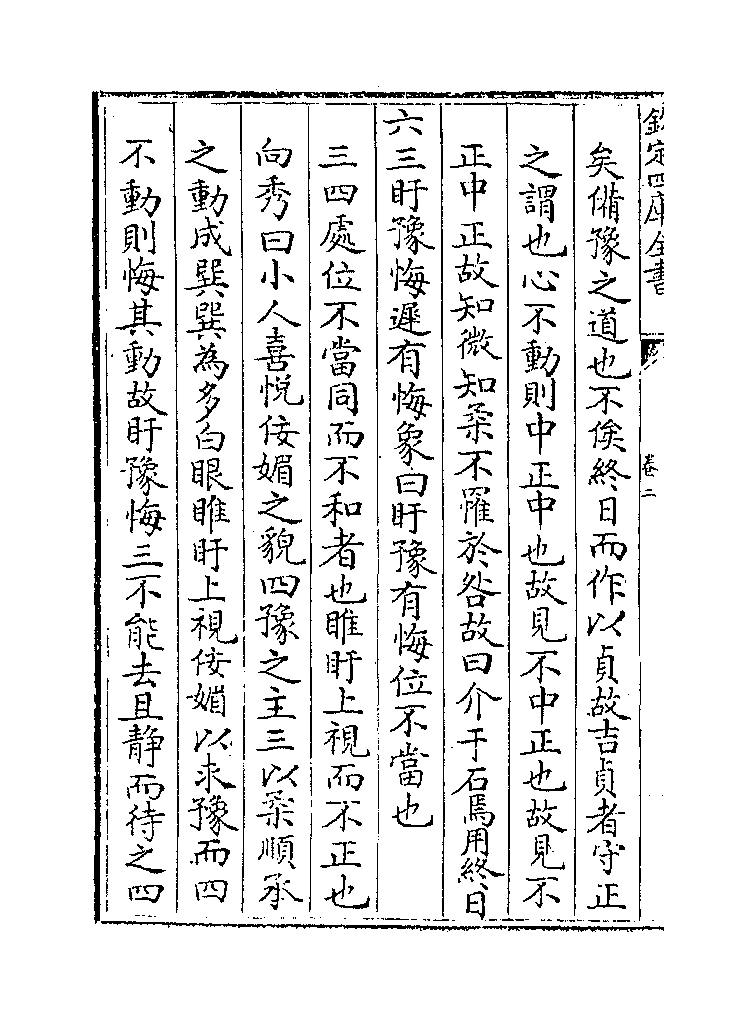 欽定四庫全書
卷二
矣備豫之道也不俟終日而作以貞故吉貞者守正
之謂也心不動則中正中也故見不中正也故見不
正中正故知微知柔不罹於咎故曰介于石焉用終日
六三盱豫悔遲有悔象曰盱豫有悔位不當也
三四處位不當同而不和者也睢盱上視而不正也
向秀曰小人喜悅佞媚之貌四豫之主三以柔順承
之動成巽巽為多白眼睢盱上視佞媚以求豫而四
不動則悔其動故盱豫悔三不能去且静而待之四